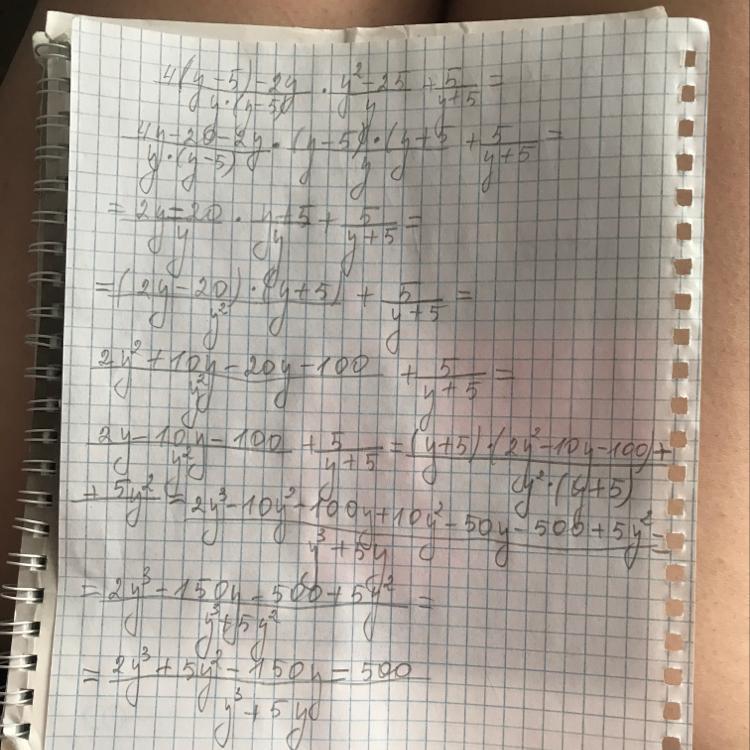 4(y-5)-2y / y·(y-5) · y²-25 / y + 5 / y+5 =
4y-20-2y / y·(y-5) · (y-5)·(y+5 / y + 5 / y+5 =
= 2y-20 / y · y+5 / y + 5 / y+5 =
= (2y-20)·(y+5) / y² + 5 / y+5 =
2y²+10y-20y-100 / y² + 5 / y+5 =
2y-10y-100 / y² + 5 / y+5 = (y+5)·(2y²-10y-100)+ / y²·(y+5)
+ 5y² = 2y³-10y²-100y+10y²-50y-500+5y² / y³+5y =
= 2y³-150y-500+5y² / y³+5y² =
= 2y³+5y²-150y-500 / y³+5y